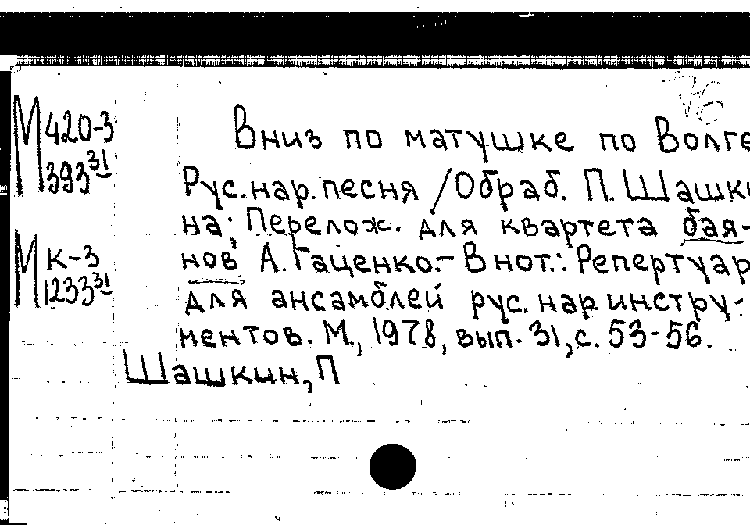 М 420-3
393³¹
М К-3
1233³¹
Вниз по матушке по Волге
Рус. нар. песня / Обраб. П. Шашки
на; Перелож. для квартета бая-
нов А. Гаценко.- В нот.: Репертуар
для ансамблей рус. нар. инстру-
ментов. М., 1978, вып. 31, с. 53-56.
Шашкин, П